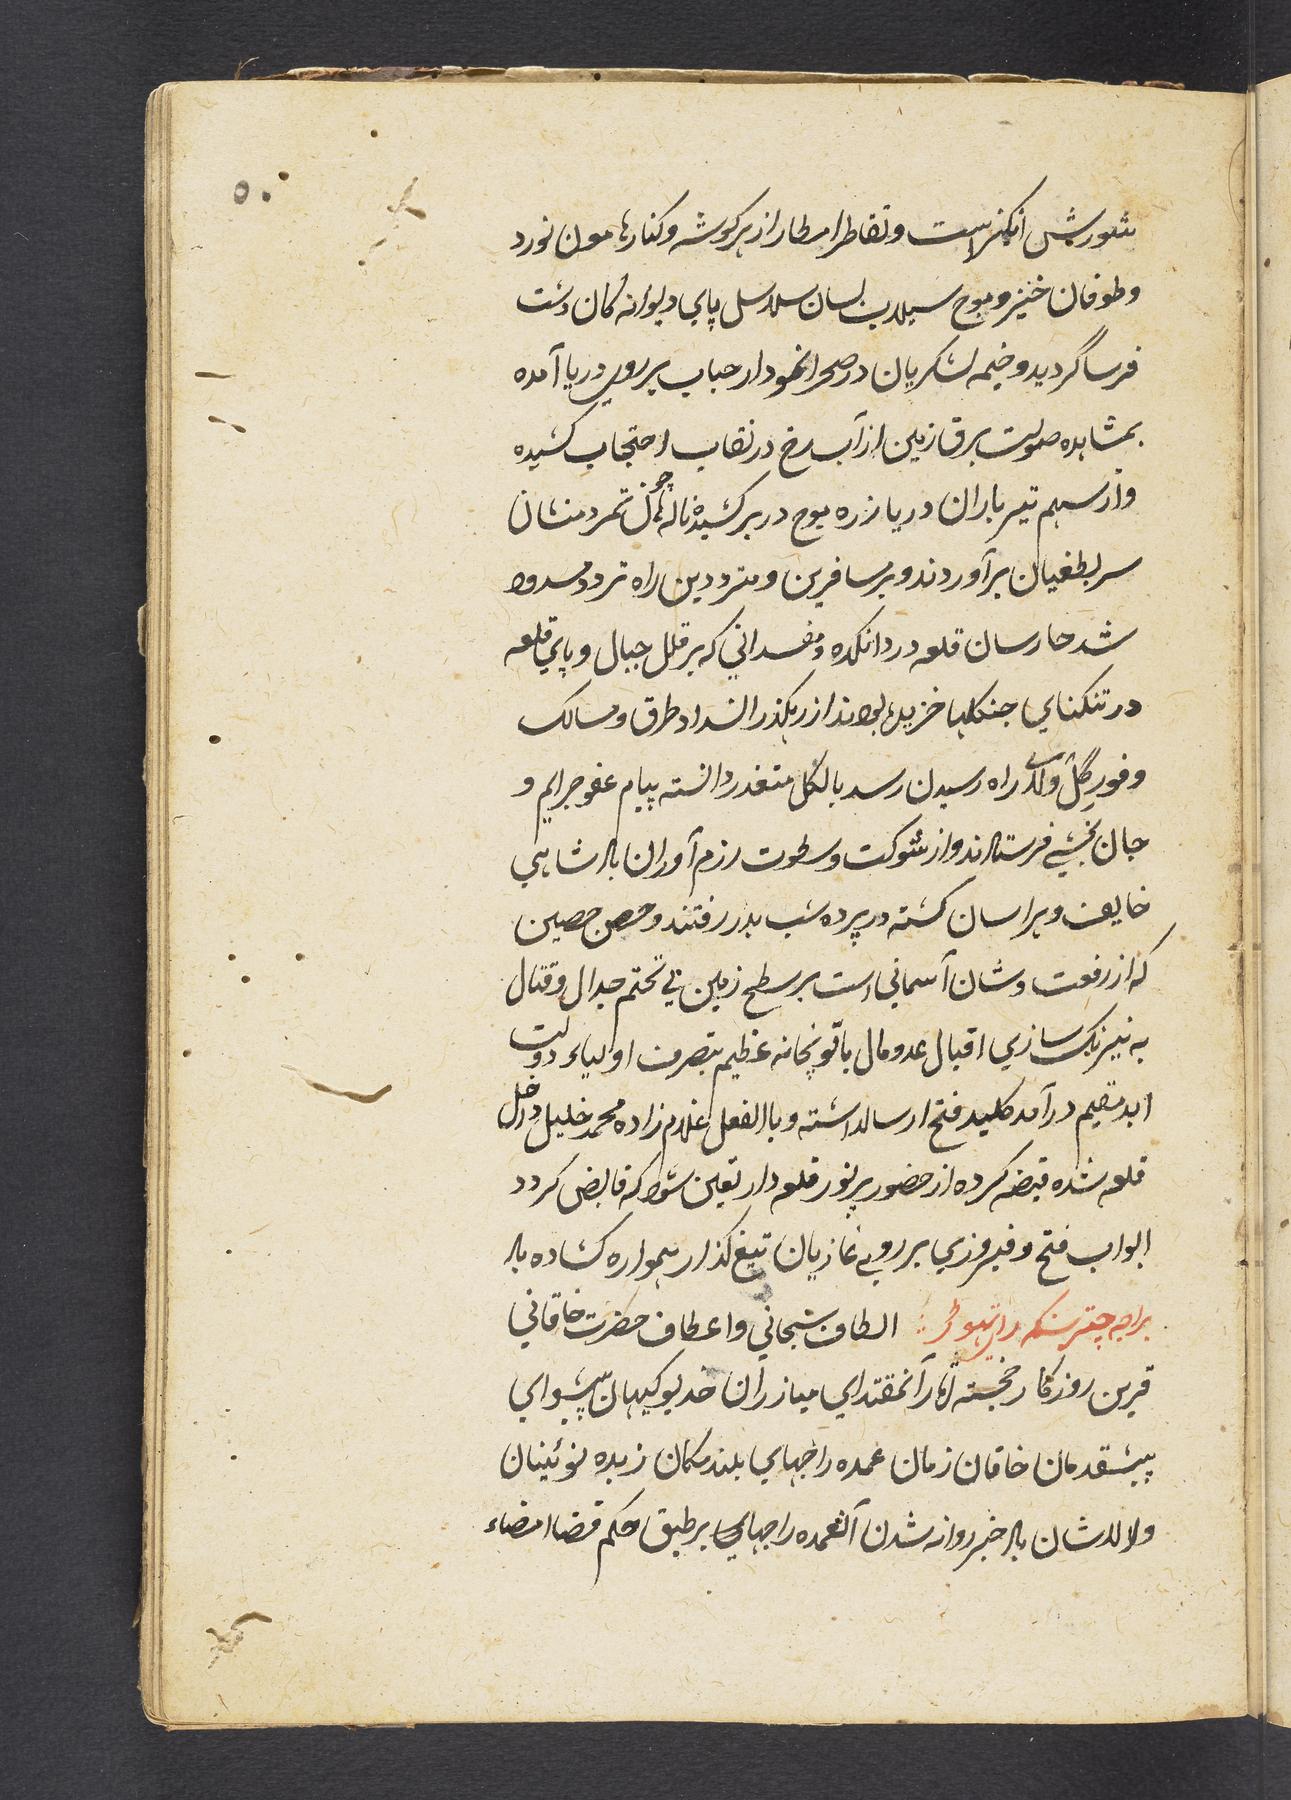 شورش انگیز است و تقاطر امطار از هر کوشه و کنار هامون نورد
و طوفان خیز و موج سیلاب بسان سلاسل پاي دیوانه کان دشت
فرسا گردید و خیمه لشکریان در صحرا نمودار حباب بر روی دریا آمده
بمشاهده صولت برق زمین از آب رخ در نقاب احتجاب کشیده
و از سهم تیر باران دریا زره موج در بر کشیده ناله تمرد منشان
سر بطغیان برآوردند و بر مسافرین و مترددین راه تردد مسدود
شد حارسان قلعه درد انکده و مفسداني که بر قلل جبال و پاي قلعه
در تنکناي جنکلها خزیده بودند از رهکذر انسداد طرق و مسالک
وفور گل و لای راه رسیدن رسد بالکل متعذر دانسته پیام عفو جرایم و
جان بخشي فرستادند و از شوکت و سطوت رزم آوران پادشاهي
خایف و هراسان کشته در پرده شب بدر رفتند و حصن حصین
که از رفعت و شان آسماني است بر سطح زمین بي تحتم جدال و قتال
به نیرنک سازي اقبال عدومال با توپخانه عظیم بتصرف اولیاء دولت
ابد مقیم درآمد کلید فتح ارسالداشته و باالفعل غلام زاده محمد خلیل داخل
قلعه شده قبضه کرده از حضور پرنور قلعه دار تعین شود که قابض کردد
ابواب فتح و فیروزي بر روي غازیان تیغ کذار همواره کشاده باد
براجه چتر سنکه الطاف سبحاني و اعطاف حضرت خاقاني
قرین روزکار خجسته آثار آنمقتداي مبارزان خدیو کیهان پیشواي
پیشقدمان خاقان زمان عمده راجهاي بلند مکان زبده نوئینان
والا شان باد خبر روانه شدن آنعمده راجهاي بر طبق حکم قضا امضاء